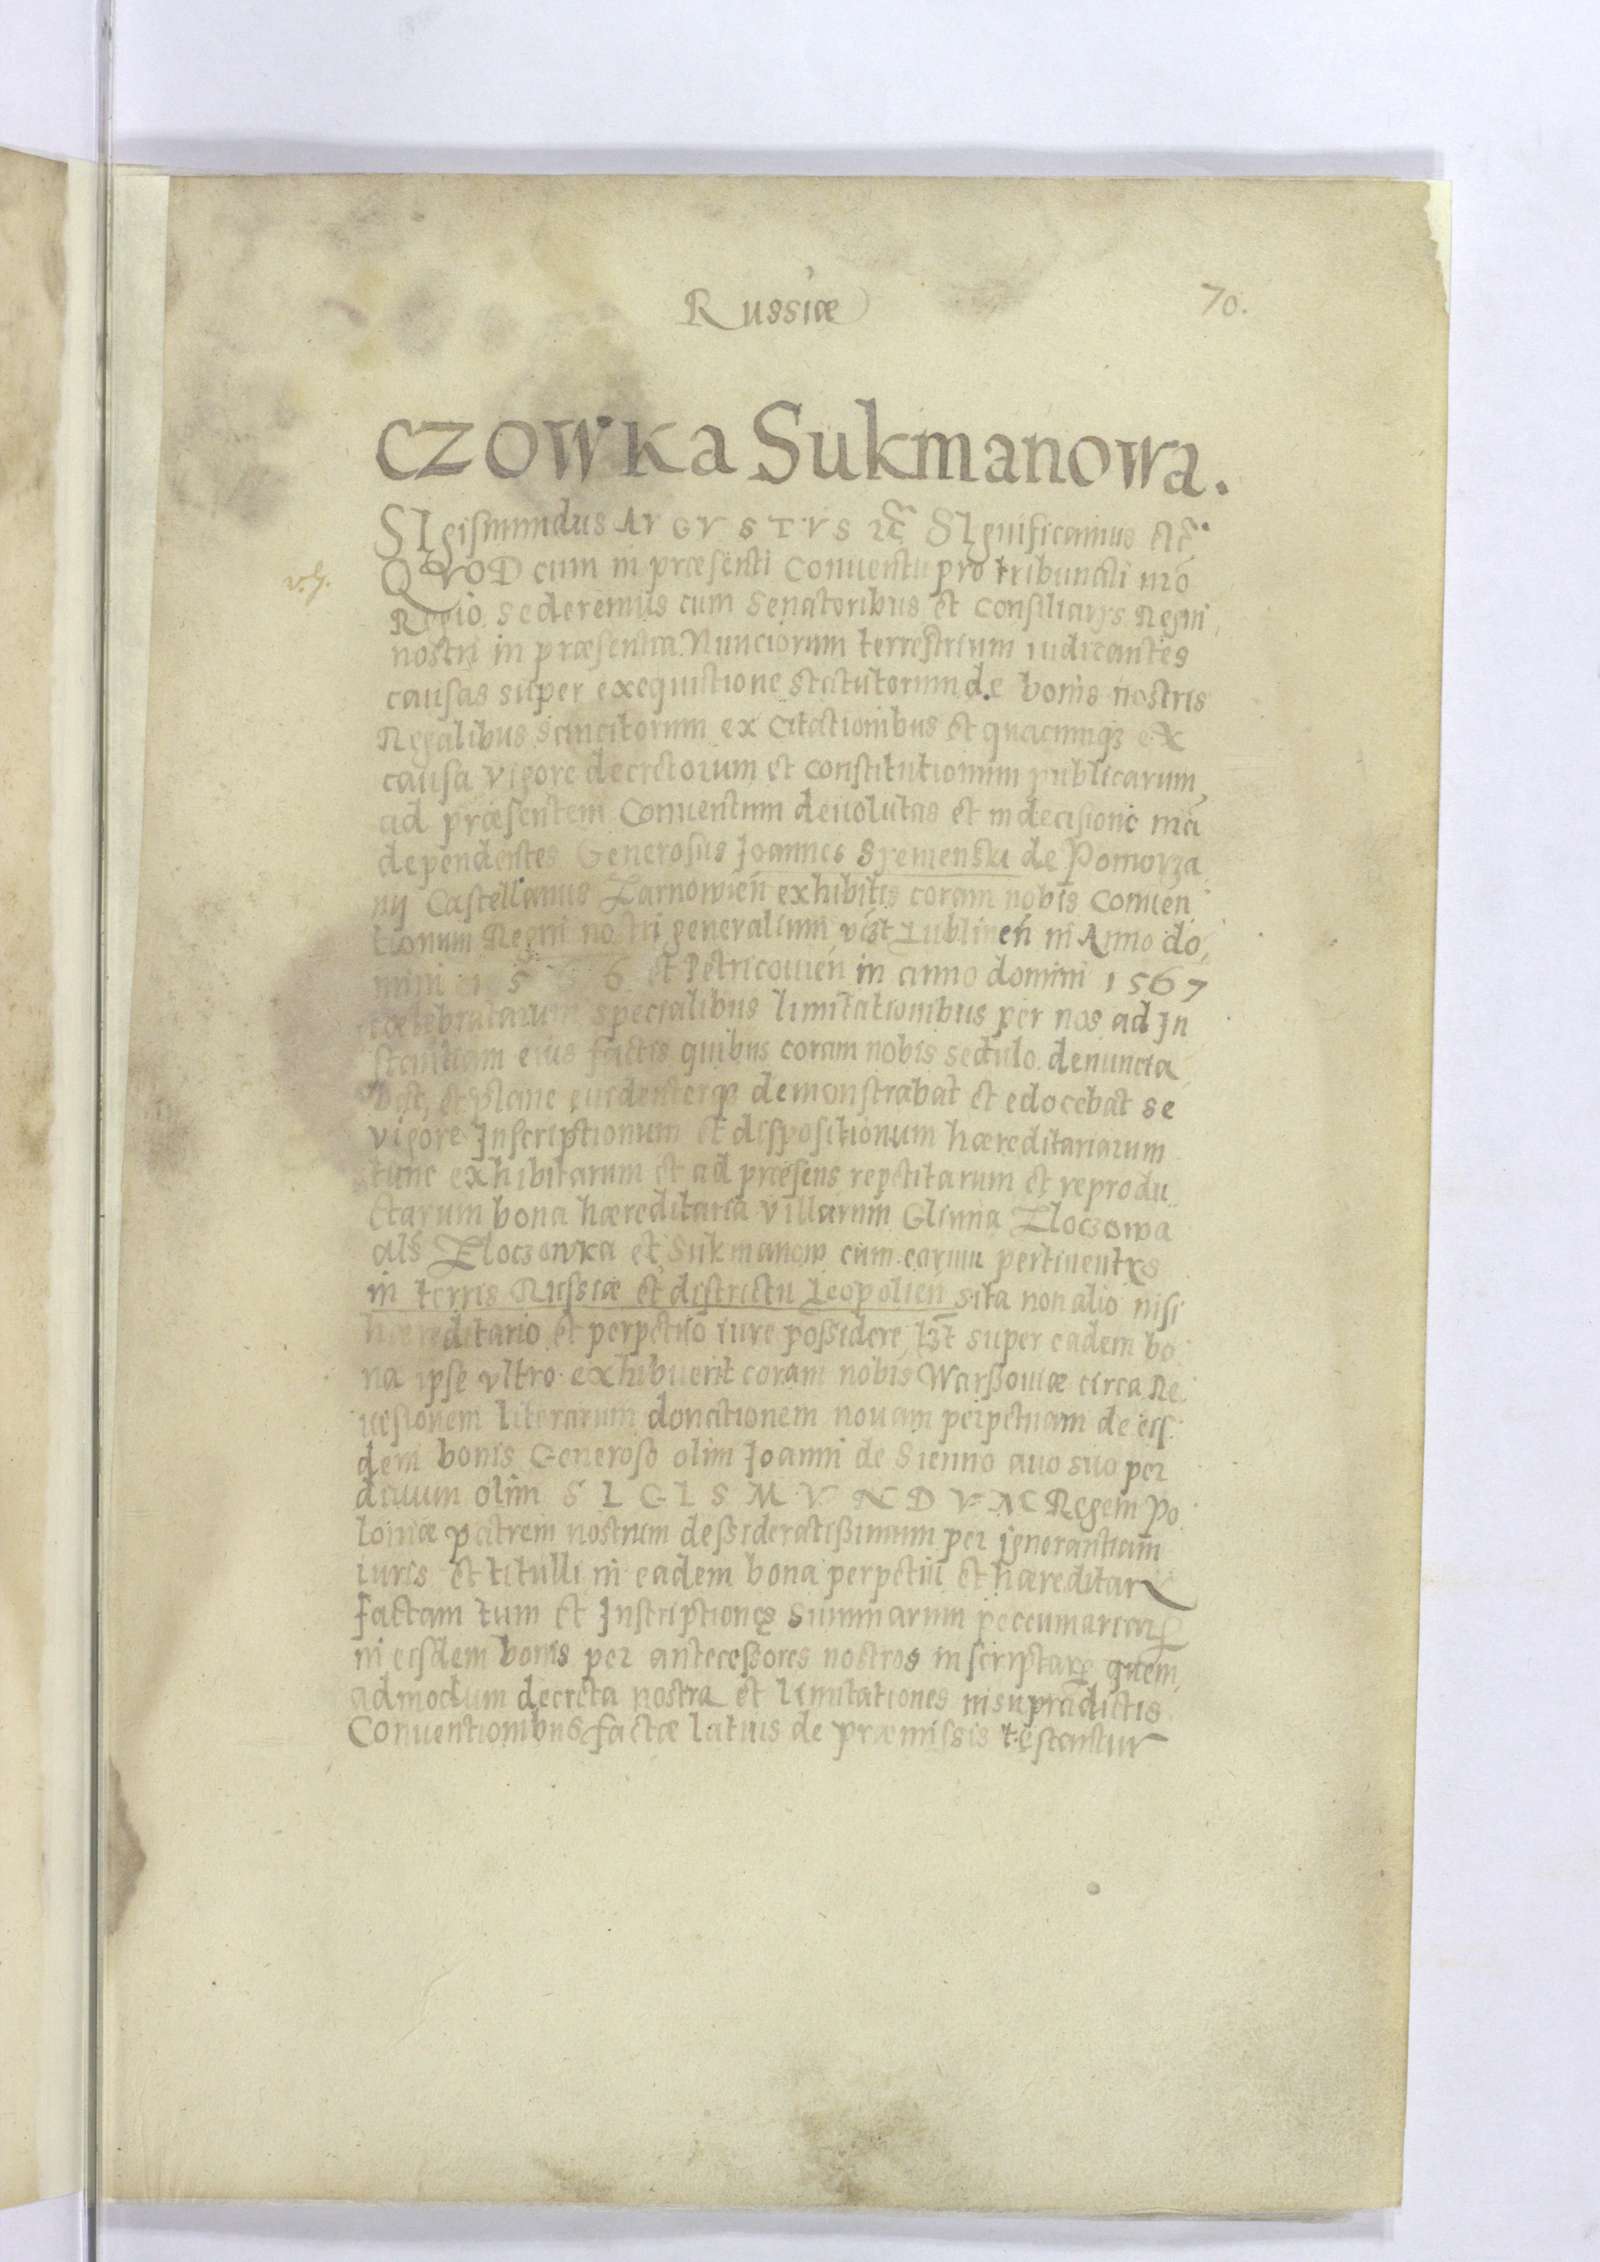 Russiæ
70.
czowka Sukmanowa.
SIgismundus AVGVSTVS ꝛc̃ SIgnificamus &c̃.
QVOD cum in præsenti Conuentu pro tribunali nrõ
Regio sederemus cum Senatoribus et Consiliarijs Regni
nostri in præsentia Nunciorum terrestrium iudicantes
causas super exequutione statutorum de bonis nostris
Regalibus sancitorum ex Citationibus et quacunqꝫ ex
causa vigore decretorum et constitutionum publicarum,
ad præsentem Conuentum deuolutas et in decisione nr̃a
dependentes Generosus Joannes Syemenski de Pomorza
nij Castellanus Zarnowień exhibitis coram nobis Conuen
tionum Regni nostri generalium vꝫt Lublineń in Anno do,
mini 1566 et Petricouień in anno domini 1567
cœlebratarum specialibus limitationibus per nos ad In
stantiam eius factis quibus coram nobis sedulo denuncia
bat, et plane euidenterqꝫ demonstrabat et edocebat se
vigore Inscriptionum et dispositionum hæreditariarum
tunc exhibitarum et ad præsens repetitarum et reprodu
ctarum bona hæreditaria villarum Glinna Zloczowa
als̃ Zloczowka et Sukmanow cum earum pertinentys
in terris Russiæ et districtu Leopolień sita non alio nisi
hæreditario et perpetuo iure possidere, lꝫt super eadem bo
na ipse vltro exhibuerit coram nobis Warßouiæ circa Re
uisionem literarum donationem nouam perpetuam de eis
dem bonis Generoso olim Joanni de Sienno auo suo per
diuum olim SIGISMVNDVM Regem Po
loniæ patrem nostrum dessideratißimum per ignorantiam
iuris et titulli in eadem bona perpetui et hæreditary
factam tum et Inscriptiones Summarum peccuniariarꝝ
in eisdem bonis per antecessores nostros inscriptarꝝ quem,
admodum decreta nostra et limitationes in supradictis
Conuentionibus factæ latius de præmissis testantur